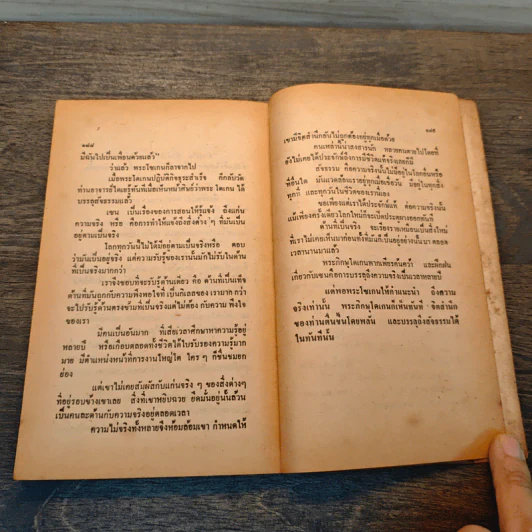 ๑๔๔
มีฉันไปเป็นเพื่อนด้วยแล้ว"
ว่าแล้ว พระโซเกนก็ลาจากไป
เมื่อพระโดเกนปฏิบัติกิจธุระสำเร็จ ก็กลับวัด
ท่านอาจารย์ไดเอร้หันที่เมื่อเห็นหน้าศิษย์ว่าพระ โดเกน ได้
บรรลุสัจธรรมแล้ว
เซน เป็นเรื่องของการสอนให้รู้แจ้ง ถึงแก่น
ความจริง หรือ คือการทำให้แจ้งถึงสิ่งต่าง ๆ ที่มันเป็น
อยู่ตามเป็นจริง
โลกทุกวันนี้ไม่ได้มีอยู่ตามเป็นจริงหรือ ตอบ
ว่ามันเป็นอยู่จริง แต่ความรับรู้ของเรานั้นมักไม่ไปรับในด้าน
ที่เป็นจริงมากกว่า
เราจึงชอบที่จะรับรู้ด้านเดียว คือ ด้านที่เป็นเท็จ
ด้านที่มันถูกกับความพึงพอใจที่ เป็นกิเลสของ เรามาก กว่า
จะไปรับรู้ด้านตรงข้ามที่เป็นจริงแต่ไม่ต้อง กับความ พึงใจ
ของเรา
มีคนเป็นอันมาก ที่เสียเวลาศึกษาหาความรู้อยู่
หลายปี หรือเกือบตลอดทั้งชีวิตได้ใบรับรองความรู้มาก
มาย มีตำแหน่งหน้าที่การงานใหญ่โต ใคร ๆ ก็ชื่นชมยก
ย่อง
แต่เขาไม่เคยสัมผัสกับแก่นจริง ๆ ของสิ่งต่างๆ
ที่อยู่รอบข้างเขาเลย สิ่งที่เขาหยิบฉวย ยึดมั่นอยู่นั้นล้วน
เป็นคนละด้านกับความจริงอยู่ตลอดเวลา
ความไม่จริงทั้งหลายจึงห้อมล้อมเขา กำหนดให้
๑๔๕
เขามีจิตสำนึกอันไม่ถูกต้องอยู่ทุกเมื่อด้วย
คนเหล่านี้น่าสงสารนัก หลายคนตายไปโดยที่
ยังไม่เคยได้ประจักษ์ถึงการมีชีวิตแท้จริงเลยก็มี
สัจธรรม คือความจริงนั้นไม่ได้อยู่ในโลกอื่นหรือ
ที่อื่นใด มันแวดล้อมเราอยู่ทุกเมื่อเชื่อวัน มีอยู่ในทุกสิ่ง
ทุกที่ และทุกวันในชีวิตของเรานั่นเอง
ขอเพียงแต่เราได้ประจักษ์แก่ ต่อความจริงนั้น
แม้เพียงครั้งเดียวโลกใหม่ก็จักเปิดประตูถาวรออกทันที
ด้านที่เป็นจริง จะเรียงรายเหมือนเป็นสิ่งใหม่
ที่เราไม่เคยเห็นมาก่อนทั้งที่มันก็เป็นอยู่อย่างนั้นมา ตลอด
เวลานานมาแล้ว
พระภิกษุโดเกนพากเพียรค้นคว้า และฝึกฝน
เกี่ยวกับเซนคือการบรรลุถึงความจริงเป็นเวลาหลายปี
แต่พอพระโซเกนให้คำแนะนำ ถึงความ
จริงเท่านั้น พระภิกษุโดเกนก็เห็นทันที จิตสำนึก
ของท่านตื่นขึ้นโดยพลัน และบรรลุถึงสัจธรรมได้
ในทันทีนั้น